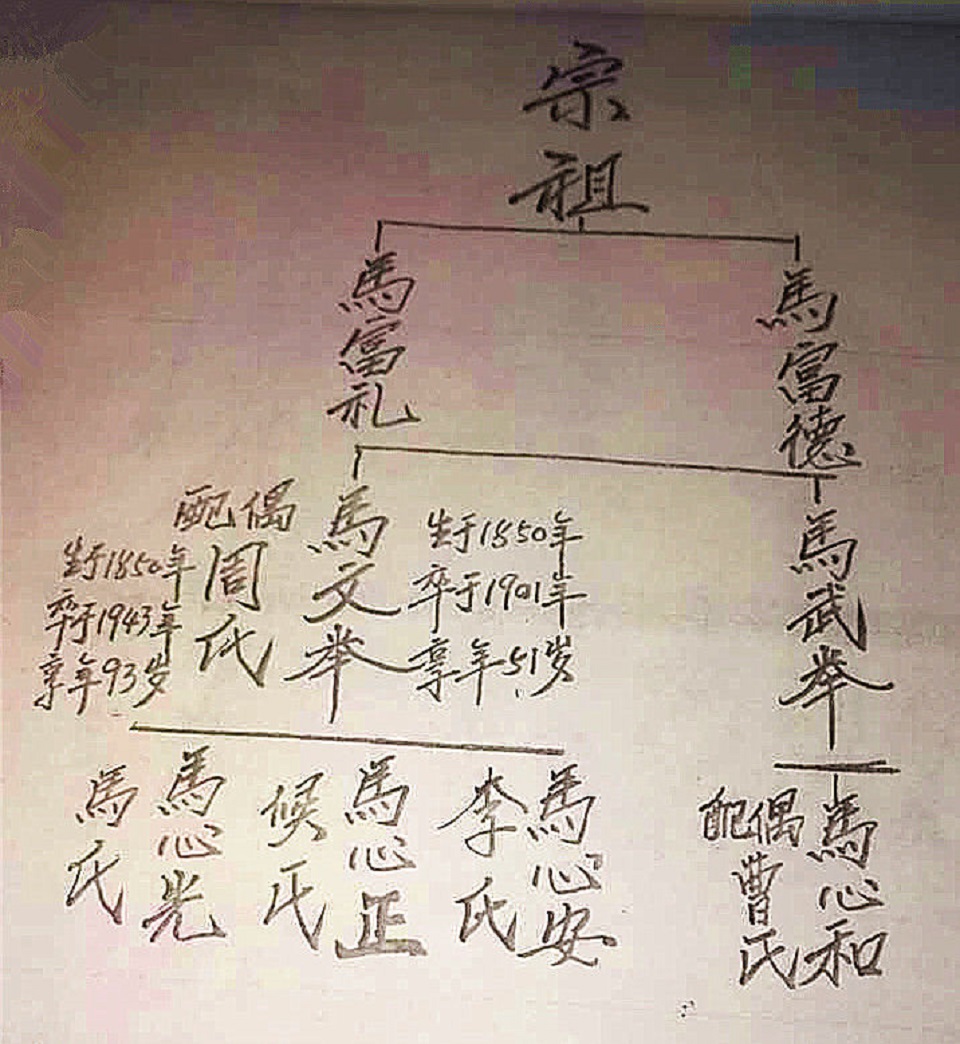 宗祖
馬富礼
馬富德
配偶
周氏
生于1850年
卒于1943年
享年93岁
馬文举
生于1850年
卒于1901年
享年51岁
馬武举
馬氏
馬心光
候氏
馬心正
李氏
馬心安
配偶
曹氏
馬心和